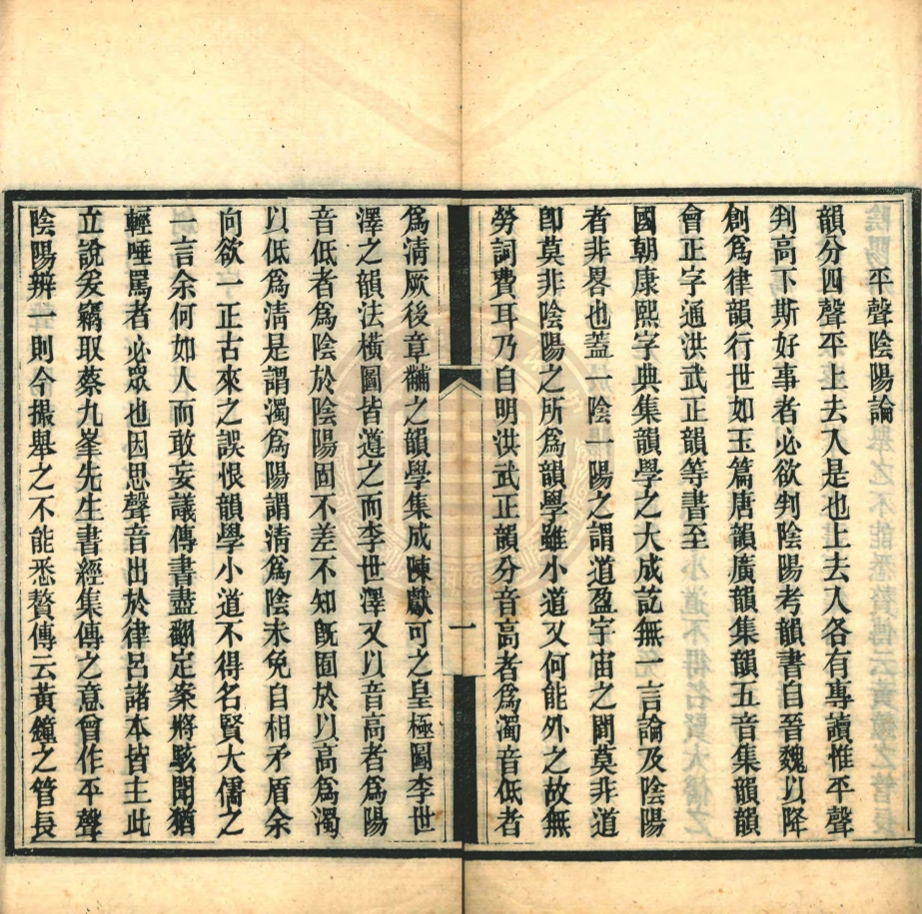 平聲陰陽論
韻分四聲平上去入是也上去入各有專讀惟平聲
判高下斯好事者必欲判陰陽考韻書自晉魏以降
創爲律韻行世如玉篇唐韻廣韻集韻五音集韻韻
會正字通洪武正韻等書至
國朝康熙字典集韻學之大成訖無一言論及陰陽
者非畧也蓋一陰一陽之謂道盈宇宙之閒莫非道
卽莫非陰陽之所爲韻學雖小道又何能外之故無
勞詞費耳乃自明洪武正韻分音高者爲濁音低者
一
爲清厥後章黼之韻學集成陳獻可之皇極圖李世
澤之韻法橫圖皆道之而李世澤又以音高者爲陽
音低者爲陰於陰陽固不差不知旣囿於以高爲濁
以低爲淸是謂濁爲陽謂淸爲陰未免自相矛盾余
向欲一正古來之誤恨韻學小道不得名賢大儒之
一言余何如人而敢妄議傳書盡翻定案將駭聞猶
輕唾罵者必眾也因思聲音出於律呂諸本皆主此
立說爰竊取蔡九峯先生書經集傳之意曾作平聲
陰陽辨一則今撮舉之不能悉贅傳云黃鐘之管長